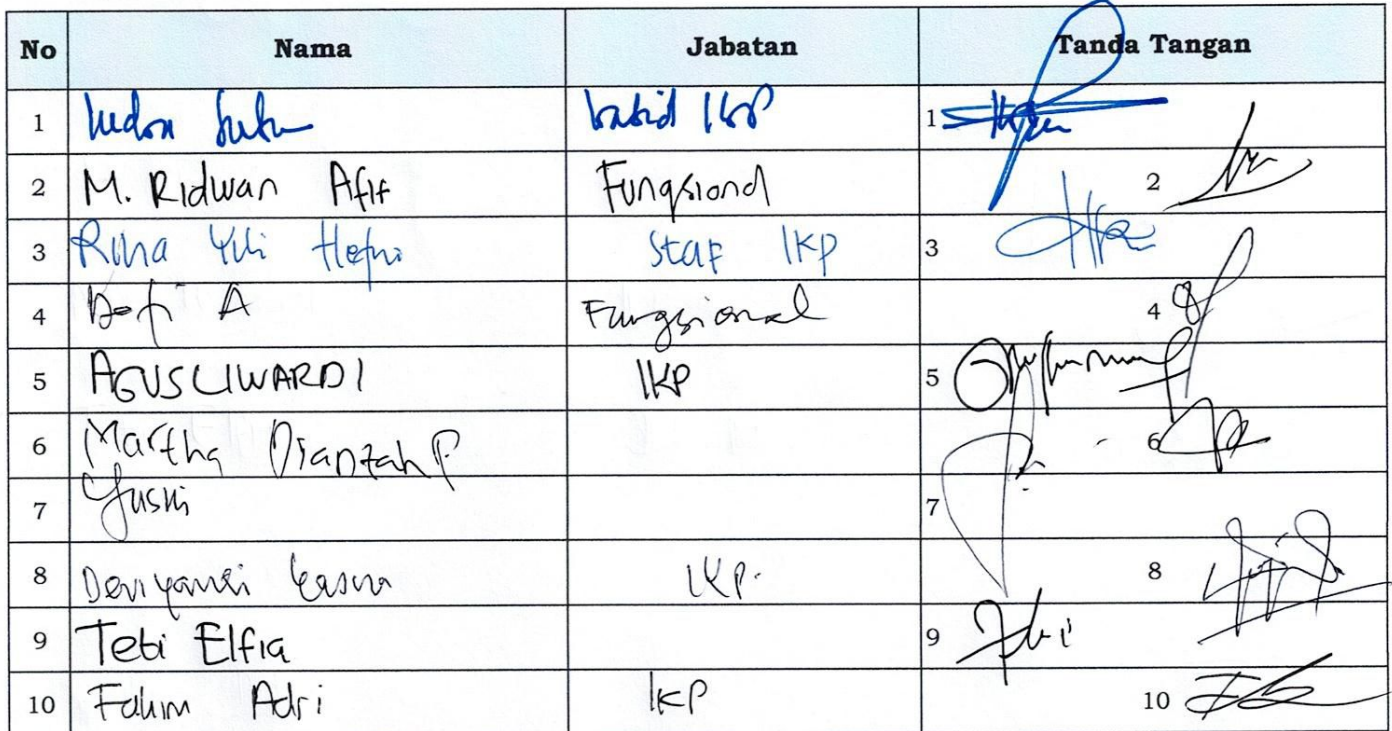 No Nama Jabatan Tanda Tangan
1 kabid IKP 1
2 M. Ridwan Afif Fungsional 2
3 Rina Yuli Hefni Staf IKP 3
4 A Fungsional 4
5 AGUSLIWARDI IKP 5
6 Martha Dianzah P. 6
7 Yusni 7
8 Deviyanti IKP. 8
9 Tebi Elfia 9
10 Fahim Adri IKP 10